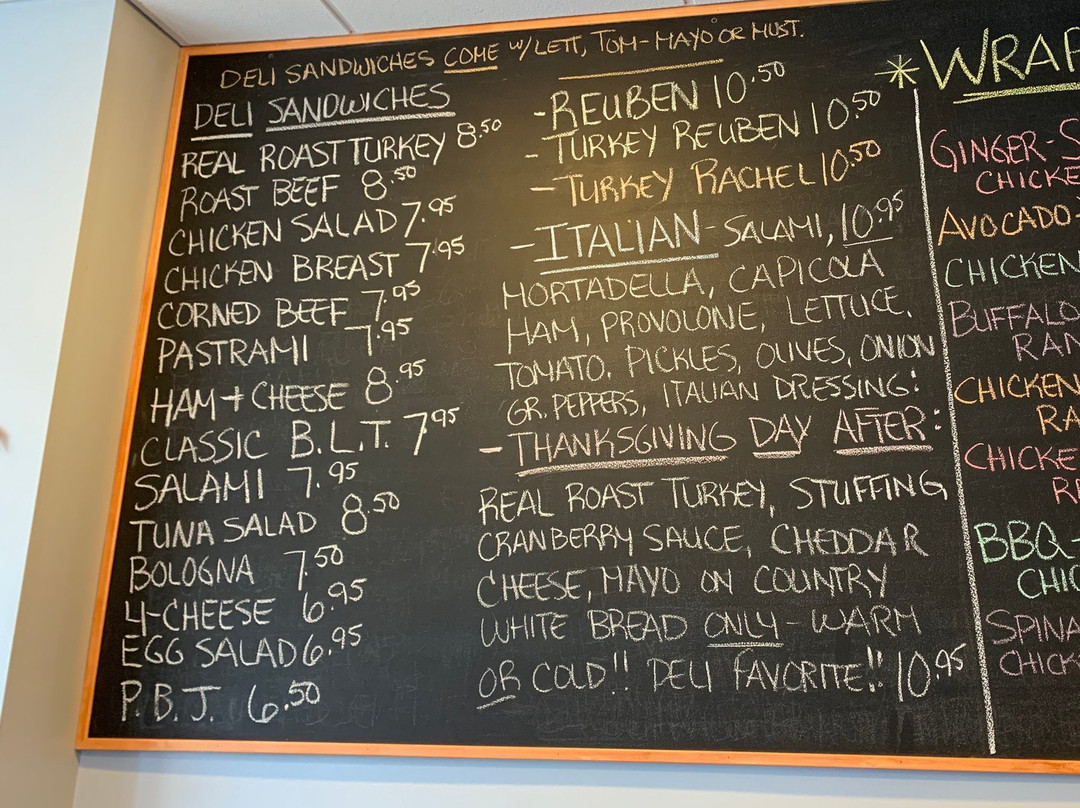 DELI SANDWICHES COME W/LETT, TOM-MAYO OR MUST.
DELI SANDWICHES
REAL ROAST TURKEY 8.50
ROAST BEEF 8.50
CHICKEN SALAD 7.95
CHICKEN BREAST 7.95
CORNED BEEF 7.95
PASTRAMI 7.95
HAM + CHEESE 8.95
CLASSIC B.L.T. 7.95
SALAMI 7.95
TUNA SALAD 8.50
BOLOGNA 7.50
4-CHEESE 6.95
EGG SALAD 6.95
P.B.J. 6.50
-REUBEN 10.50
-TURKEY REUBEN 10.50
-TURKEY RACHEL 10.50
-ITALIAN-SALAMI, 10.95
MORTADELLA, CAPICOLA
HAM, PROVOLONE, LETTUCE,
TOMATO, PICKLES, OLIVES, ONION
GR. PEPPERS, ITALIAN DRESSING!
-THANKSGIVING DAY AFTER:
REAL ROAST TURKEY, STUFFING
CRANBERRY SAUCE, CHEDDAR
CHEESE, MAYO ON COUNTRY
WHITE BREAD ONLY-WARM
OR COLD!! DELI FAVORITE!! 10.95
*WRAP
GINGER-S
CHICKE
AVOCADO-
CHICKEN
BUFFALO
RAN
CHICKEN
RA
CHICKE
R
BBQ-
CHIC
SPINA
CHICK